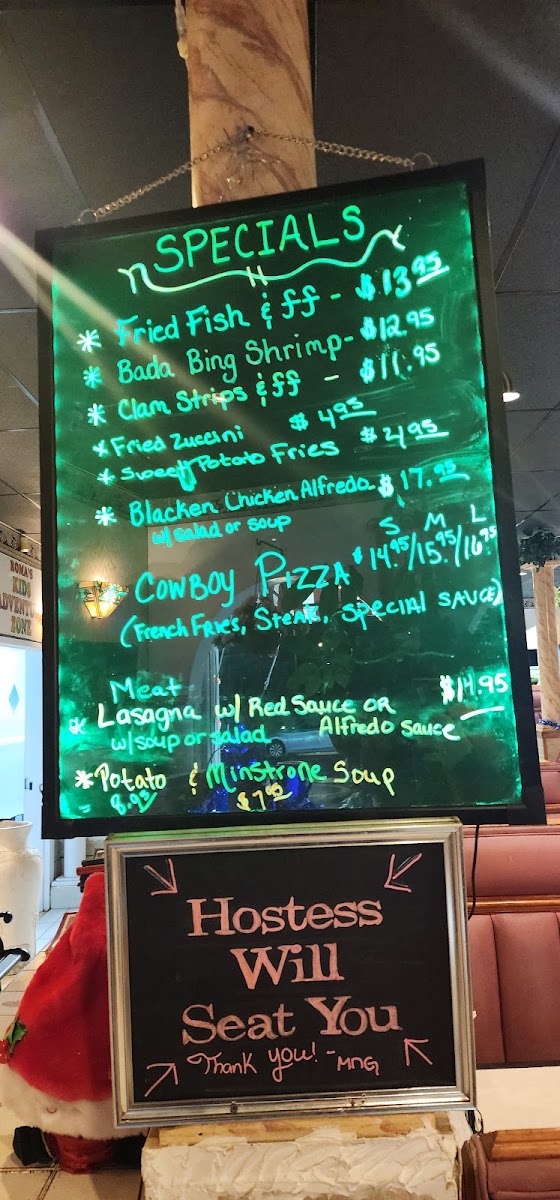 SPECIALS
* Fried Fish & ff - $13.95
* Bada Bing Shrimp - $12.95
* Clam Strips & ff - $11.95
* Fried Zuccini $4.95
* Sweet Potato Fries $4.95
* Blacken Chicken Alfredo $17.95
w/ salad or soup
S M L
COWBOY PIZZA $14.95/15.95/16.95
(French Fries, Steak, Special Sauce)
Meat
* Lasagna w/ Red Sauce OR $14.95
w/ soup or salad Alfredo Sauce
* Potato & Minstrone Soup
8.95 $7.95
ROMA'S
KIDS
ADVENTU
ZONE
Hostess
Will
Seat You
Thank you! - MNG